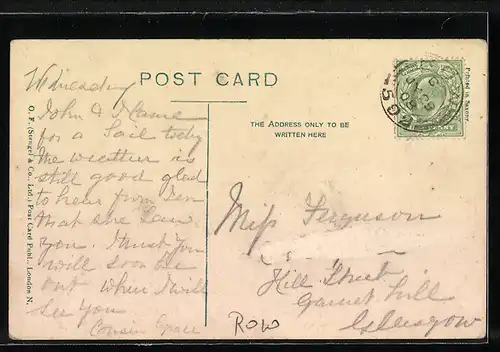 POST CARD
THE ADDRESS ONLY TO BE
WRITTEN HERE
Printed in Saxony.
O. F. (Stengel & Co., Ltd.) Post Card Publ., London N.
John & I came
for a Sail today
the weather is
still good glad
to hear from Jen
that she saw
you. I trust you
will soon be
out when I will
see you
Cousin Grace
Miss Ferguson
Hill Street
Garnet hill
Glasgow
ROW